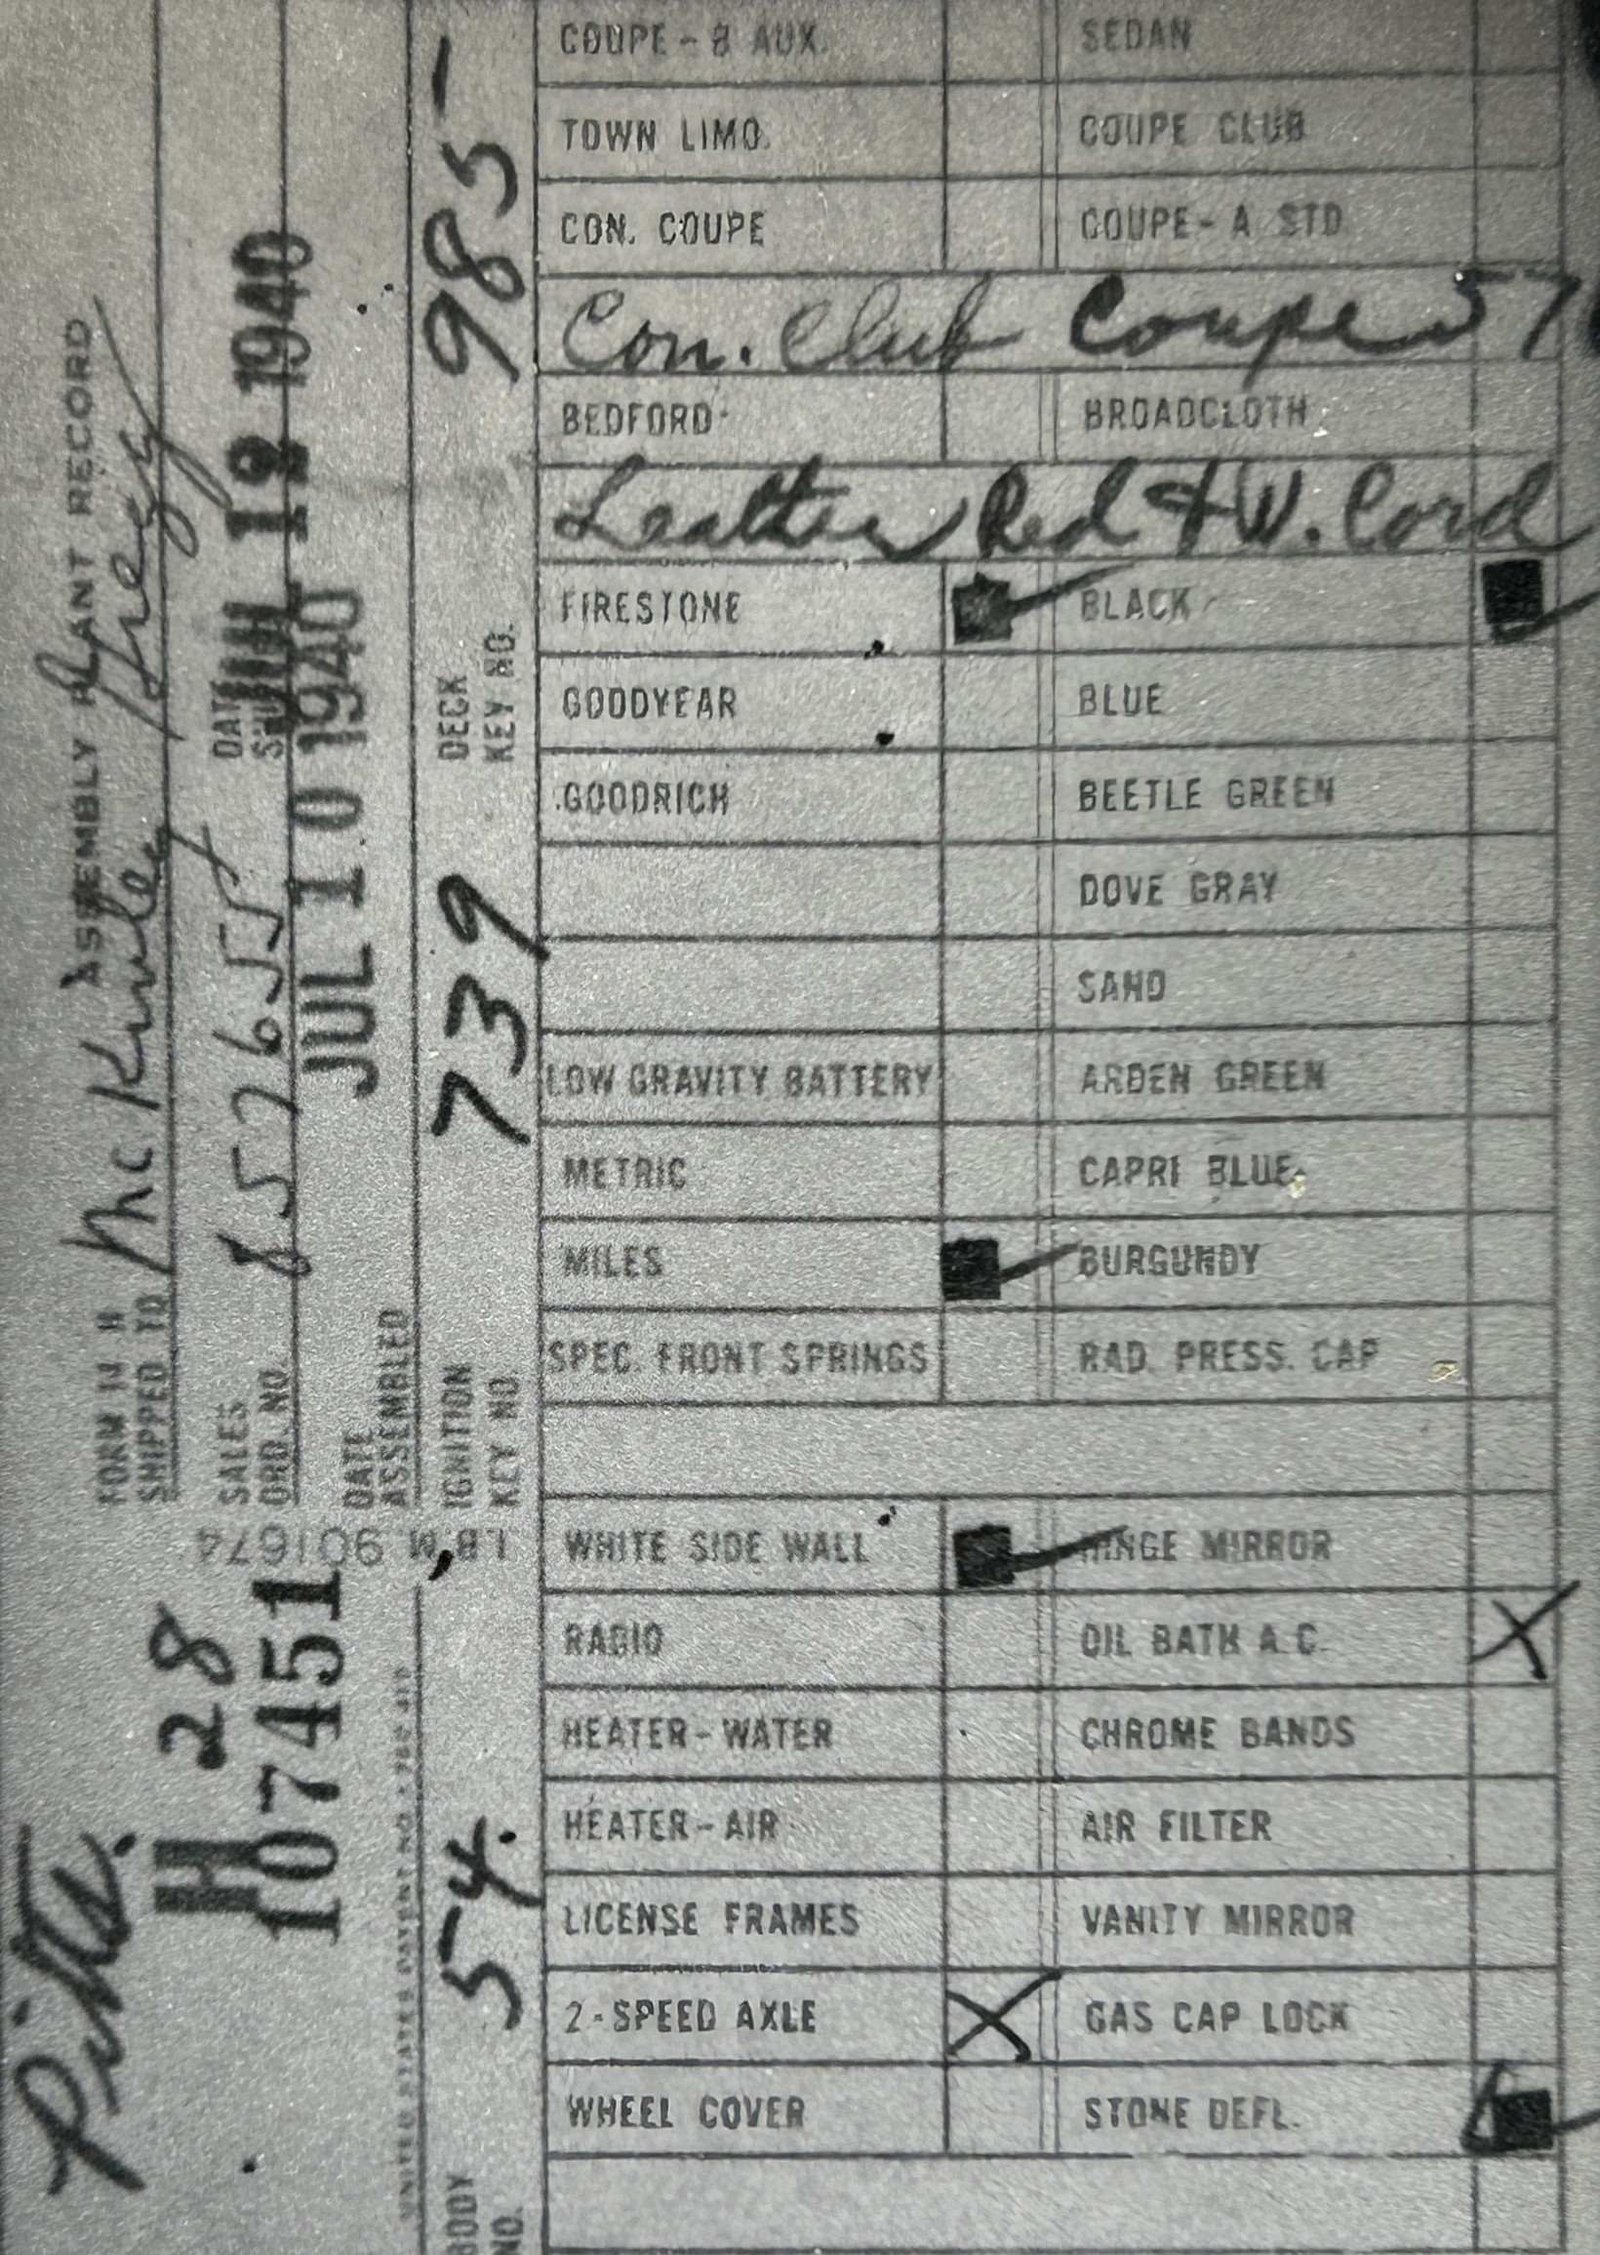 ASSEMBLY PLANT RECORD
FORM IV H
SHIPPED TO Mc Kinley Gregg
SALES ORD. NO. 852655
DATE SHIPPED JUL 12 1940
DATE ASSEMBLED JUL 10 1940
IGNITION KEY NO. 739
DECK KEY NO. 985-
BODY NO. 54.
Pitts.
H 28
107451
I.B.M. 901674
COUPE - B AUX. SEDAN
TOWN LIMO. COUPE CLUB
CON. COUPE COUPE - A STD
Con. Club Coupe 57
BEDFORD BROADCLOTH
Leather Red & W. Cord
FIRESTONE BLACK
GOODYEAR BLUE
GOODRICH BEETLE GREEN
DOVE GRAY
SAND
LOW GRAVITY BATTERY ARDEN GREEN
METRIC CAPRI BLUE
MILES BURGUNDY
SPEC. FRONT SPRINGS RAD. PRESS. CAP
WHITE SIDE WALL HINGE MIRROR
RADIO OIL BATH A.C.
HEATER - WATER CHROME BANDS
HEATER - AIR AIR FILTER
LICENSE FRAMES VANITY MIRROR
2 - SPEED AXLE X GAS CAP LOCK
WHEEL COVER STONE DEFL.